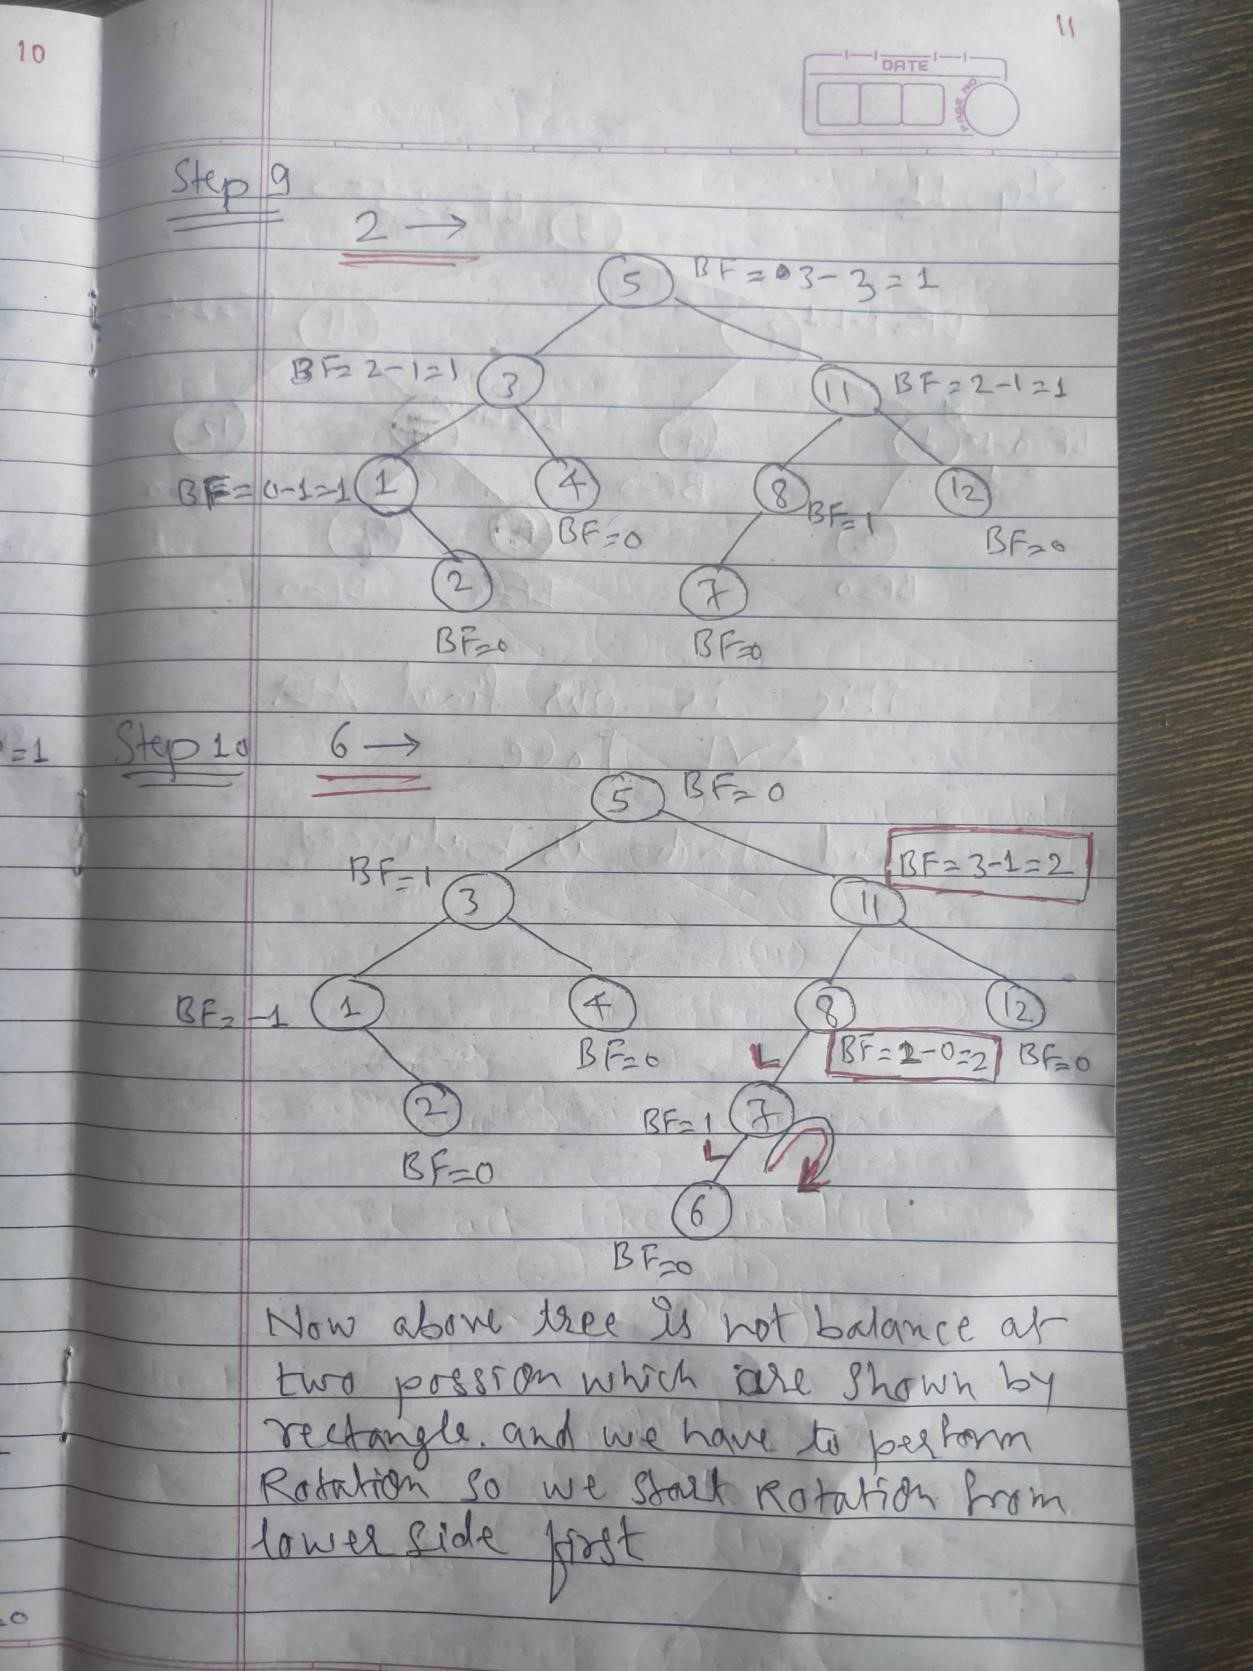 10
11
DATE
PAGE NO.
Step 9
2 →
5 BF = 3 - 3 = 1
BF = 2 - 1 = 1 3 11 BF = 2 - 1 = 1
BF = 0 - 1 = 1 1 4 8 BF = 1 12
BF = 0 BF = 0
2 7
BF = 0 BF = 0
=1
Step 10 6 →
5 BF = 0
BF = 1 3 11 BF = 3 - 1 = 2
BF = -1 1 4 8 12
BF = 0 L BF = 2 - 0 = 2 BF = 0
2 BF = 1 7
BF = 0 L
6
BF = 0
Now above tree is not balance at
two possion which are shown by
rectangle. and we have to perform
Rotation so we start Rotation from
lower side first